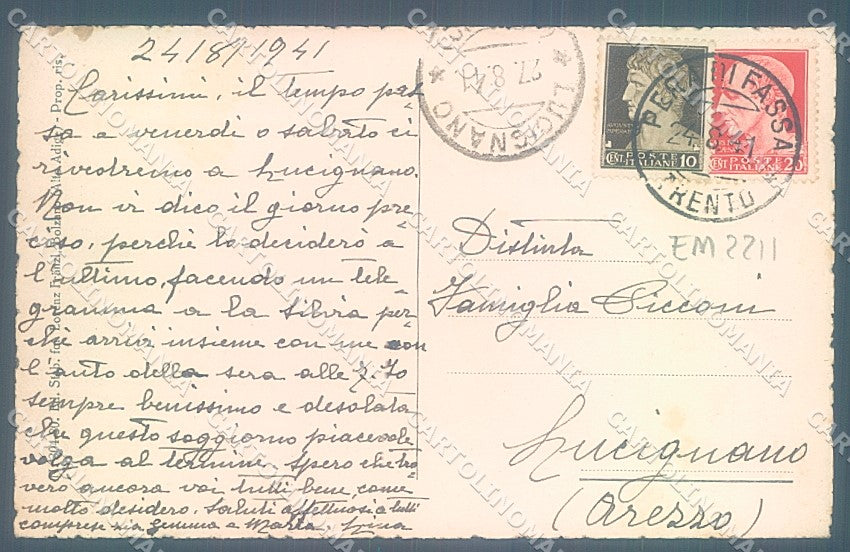 24/8/1941
Carissimi, il tempo pas=
sa e venerdi o sabato ci
rivedremo a Lucignano.
Non vi dico il giorno pre=
ciso, perchè lo deciderò a
l'ultimo, facendo un tele=
gramma a la Silvia per=
chè arrivi insieme con me con
l'auto della sera alle 7. Io
sempre benissimo e desolata
che questo soggiorno piacevole
volga al termine. Spero che tro=
verò ancora voi tutti bene, come
molto desidero. Saluti affettuosi a tutti
comprese zia Gemma e Marta. Lina
LUCIGNANO
27.8.41
POSTE ITALIANE
CENT. 10
POSTE ITALIANE
CENT. 20
PERA DI FASSA
24.8.41
TRENTO
EM 2211
Distinta
Famiglia Picconi
Lucignano
(Arezzo)
Lorenz Fränzl, Bolzano (Alto Adige) - Prop. ris.
CARTOLINOMANIA